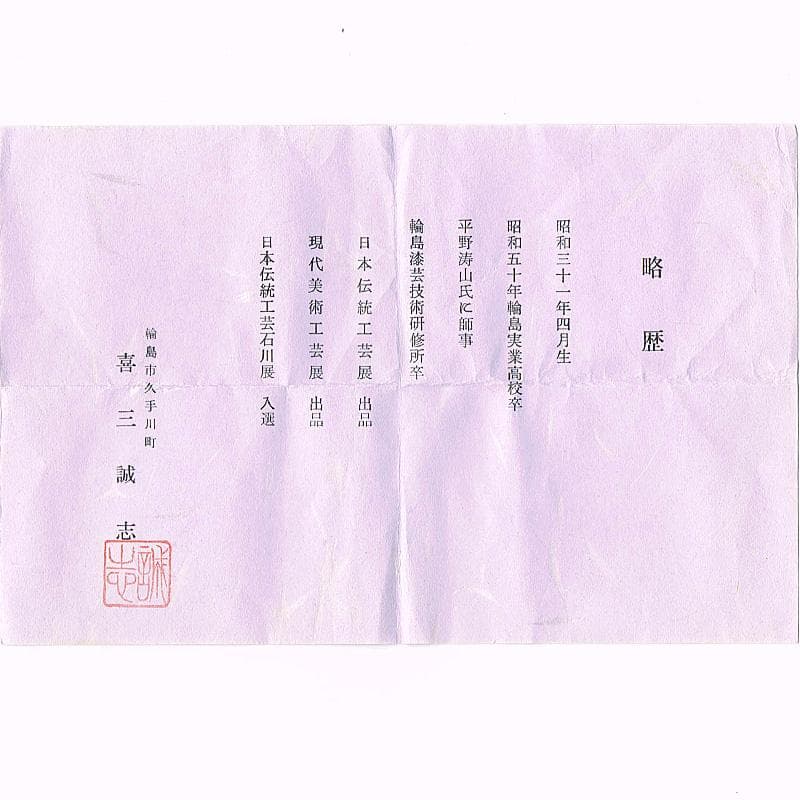 略歴
昭和三十一年四月生
昭和五十年輪島実業高校卒
平野涛山氏に師事
輪島漆芸技術研修所卒
日本伝統工芸展 出品
現代美術工芸展 出品
日本伝統工芸石川展 入選
輪島市久手川町
喜三誠志
誠志